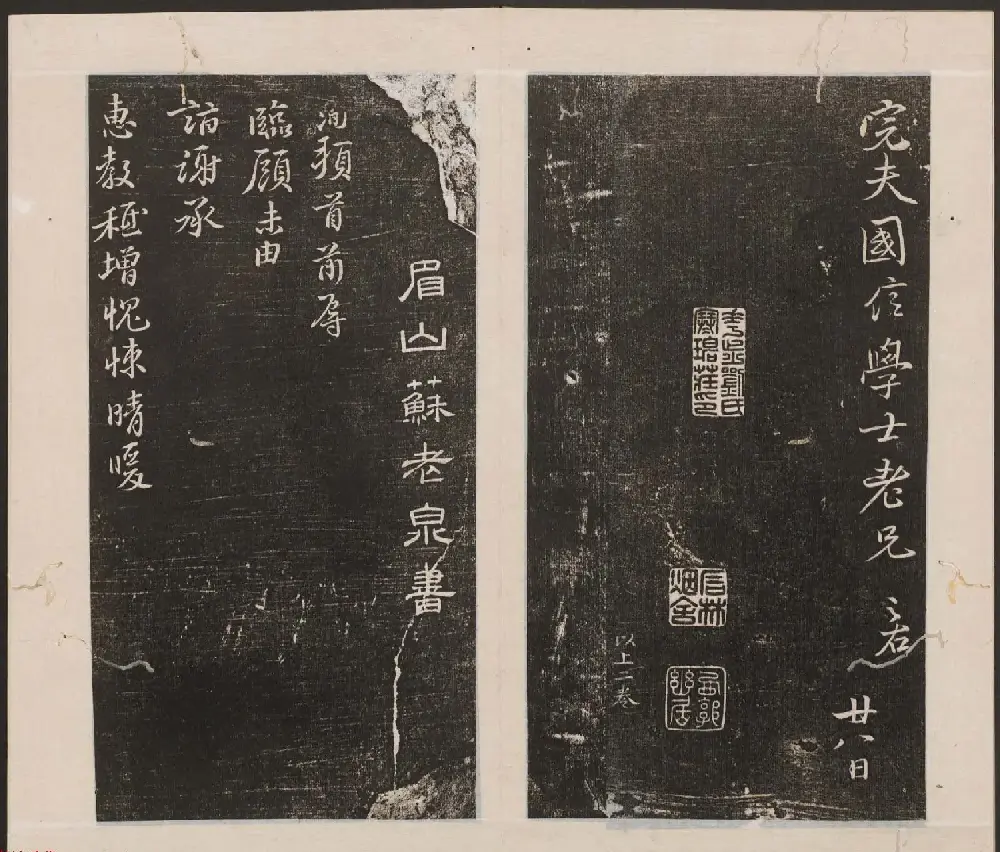 完夫國信學士老兄
廿八日
劉氏
寒碧莊印
以上二卷
眉山蘇老泉書
洵頓首前辱
臨顧未由
詣謝承
惠教極增愧悚晴暖